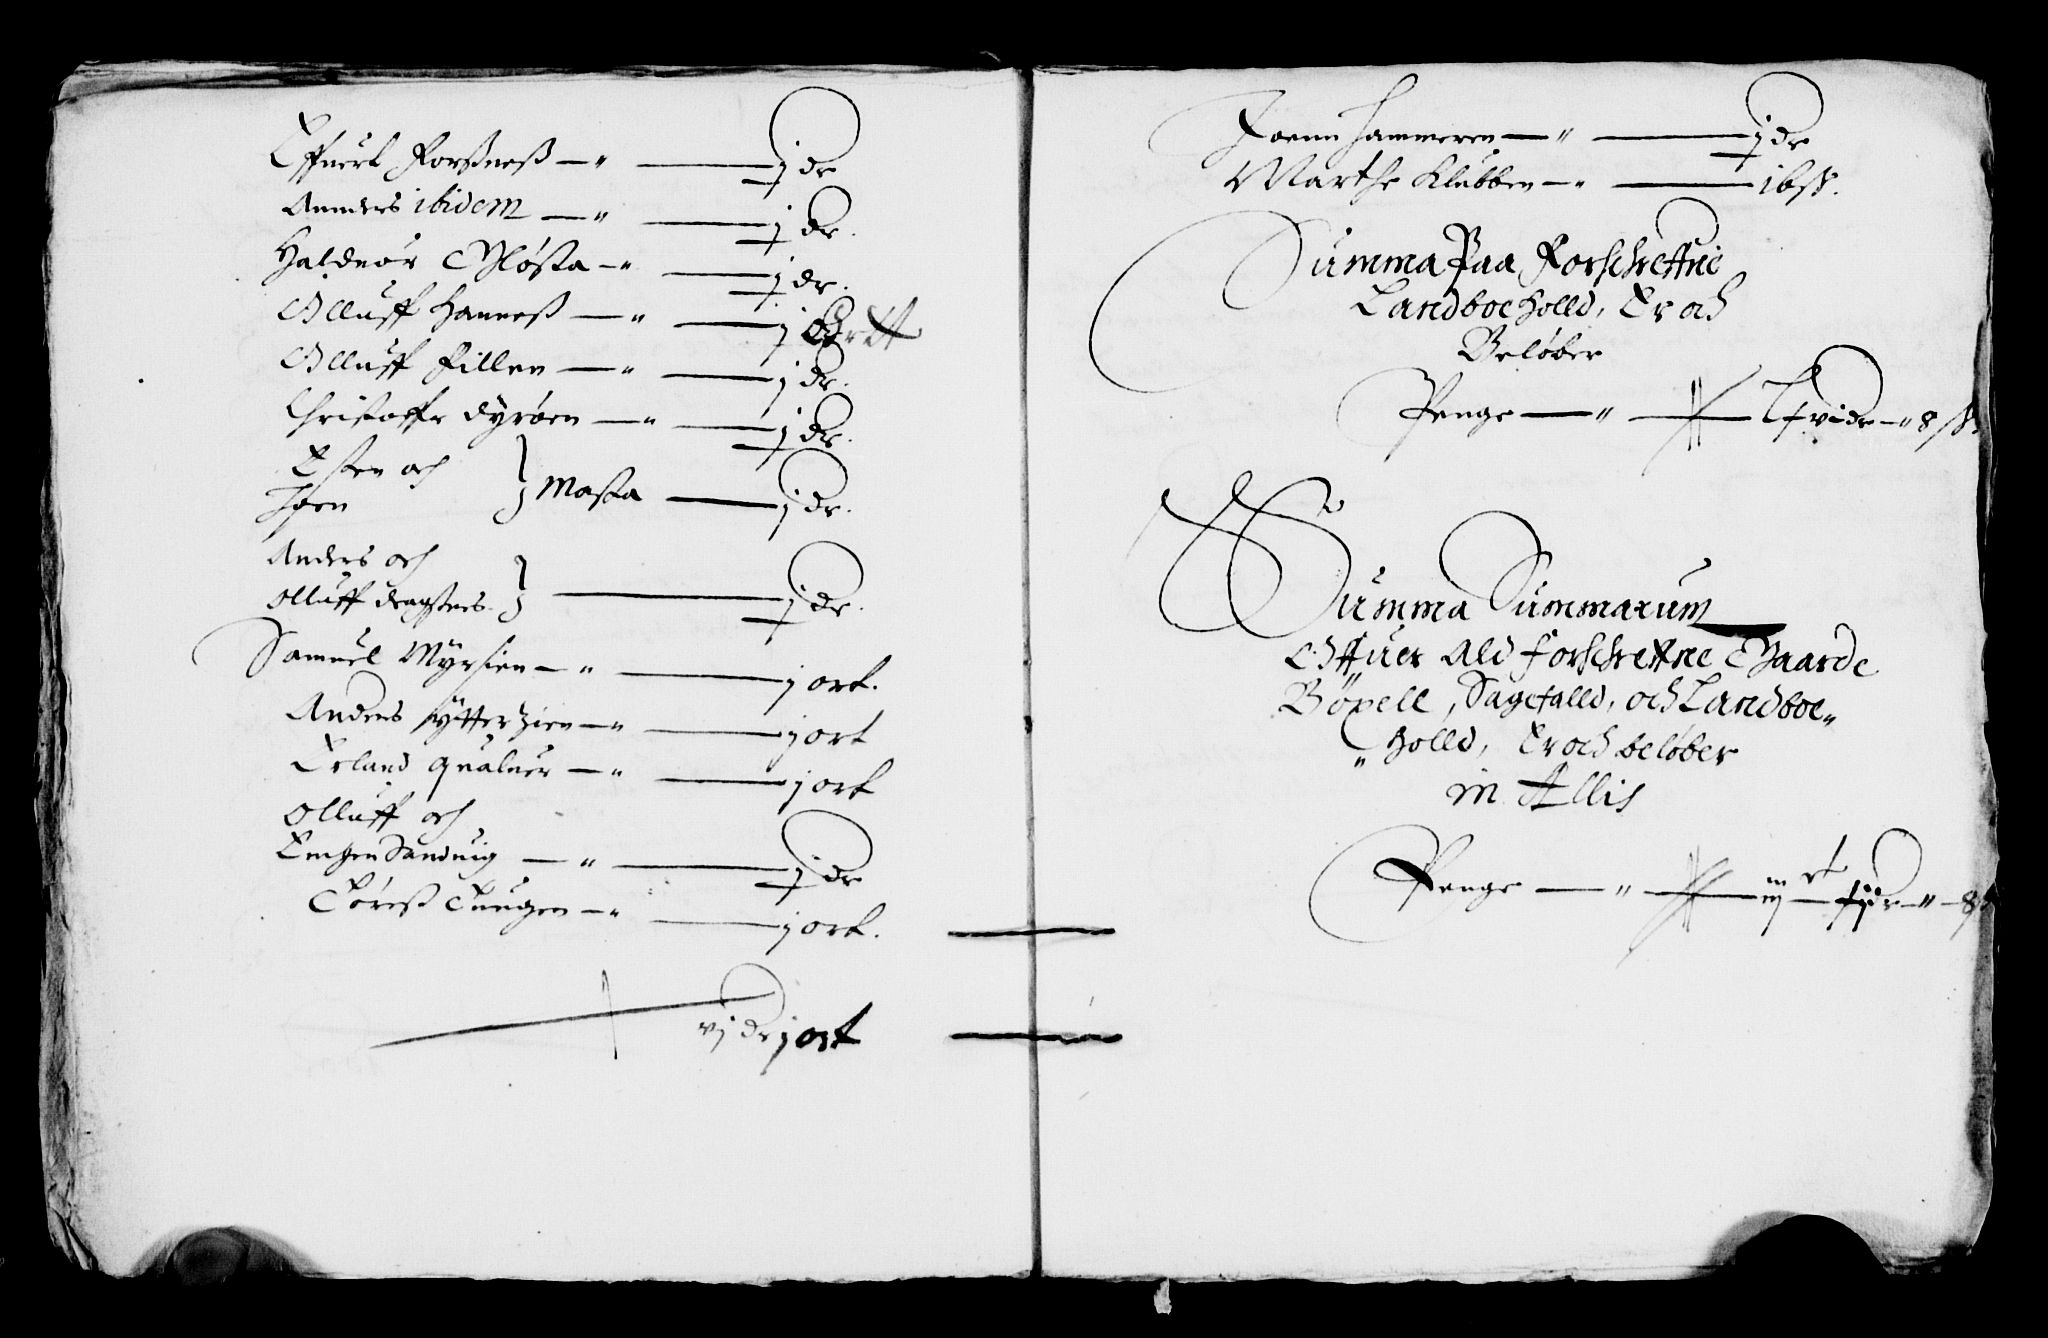 Effuert Forßneß — „ — j dr
Anders ibidem — „ — j dr.
Haldnor Mösta — „ — j dr.
Olluff Hanneß — „ — j Ortt
Olluff Fillen — „ — j dr.
Christoffr Dyrøen — „ — j dr.
Esten och
Joen } Masta — j dr.
Anders och
Olluff dragsnes } — j dr.
Samuel Myrsien — „ — j ort.
Anders ytterzien — „ — j ort
Erland qualuer — „ — j ort
Olluff och
Sanduig — „ — j dr
Töreß — „ — j ort.
vj dr j ort
Joenn Hammeren — „ — j dr
Marthe Klubben — „ — 16 sk.
Summa Paa Forschreffne
Landboeholld, Er och
Beløber
Penge — „ — vi dr — „ 8 sk.
Summa Summarum
Offuer Ald forschreffne Gaarde
Böxell, Sagefalld, och Landboe„
„holld, Er och beløber
in Allis
Penge — „ — dr „ — 8